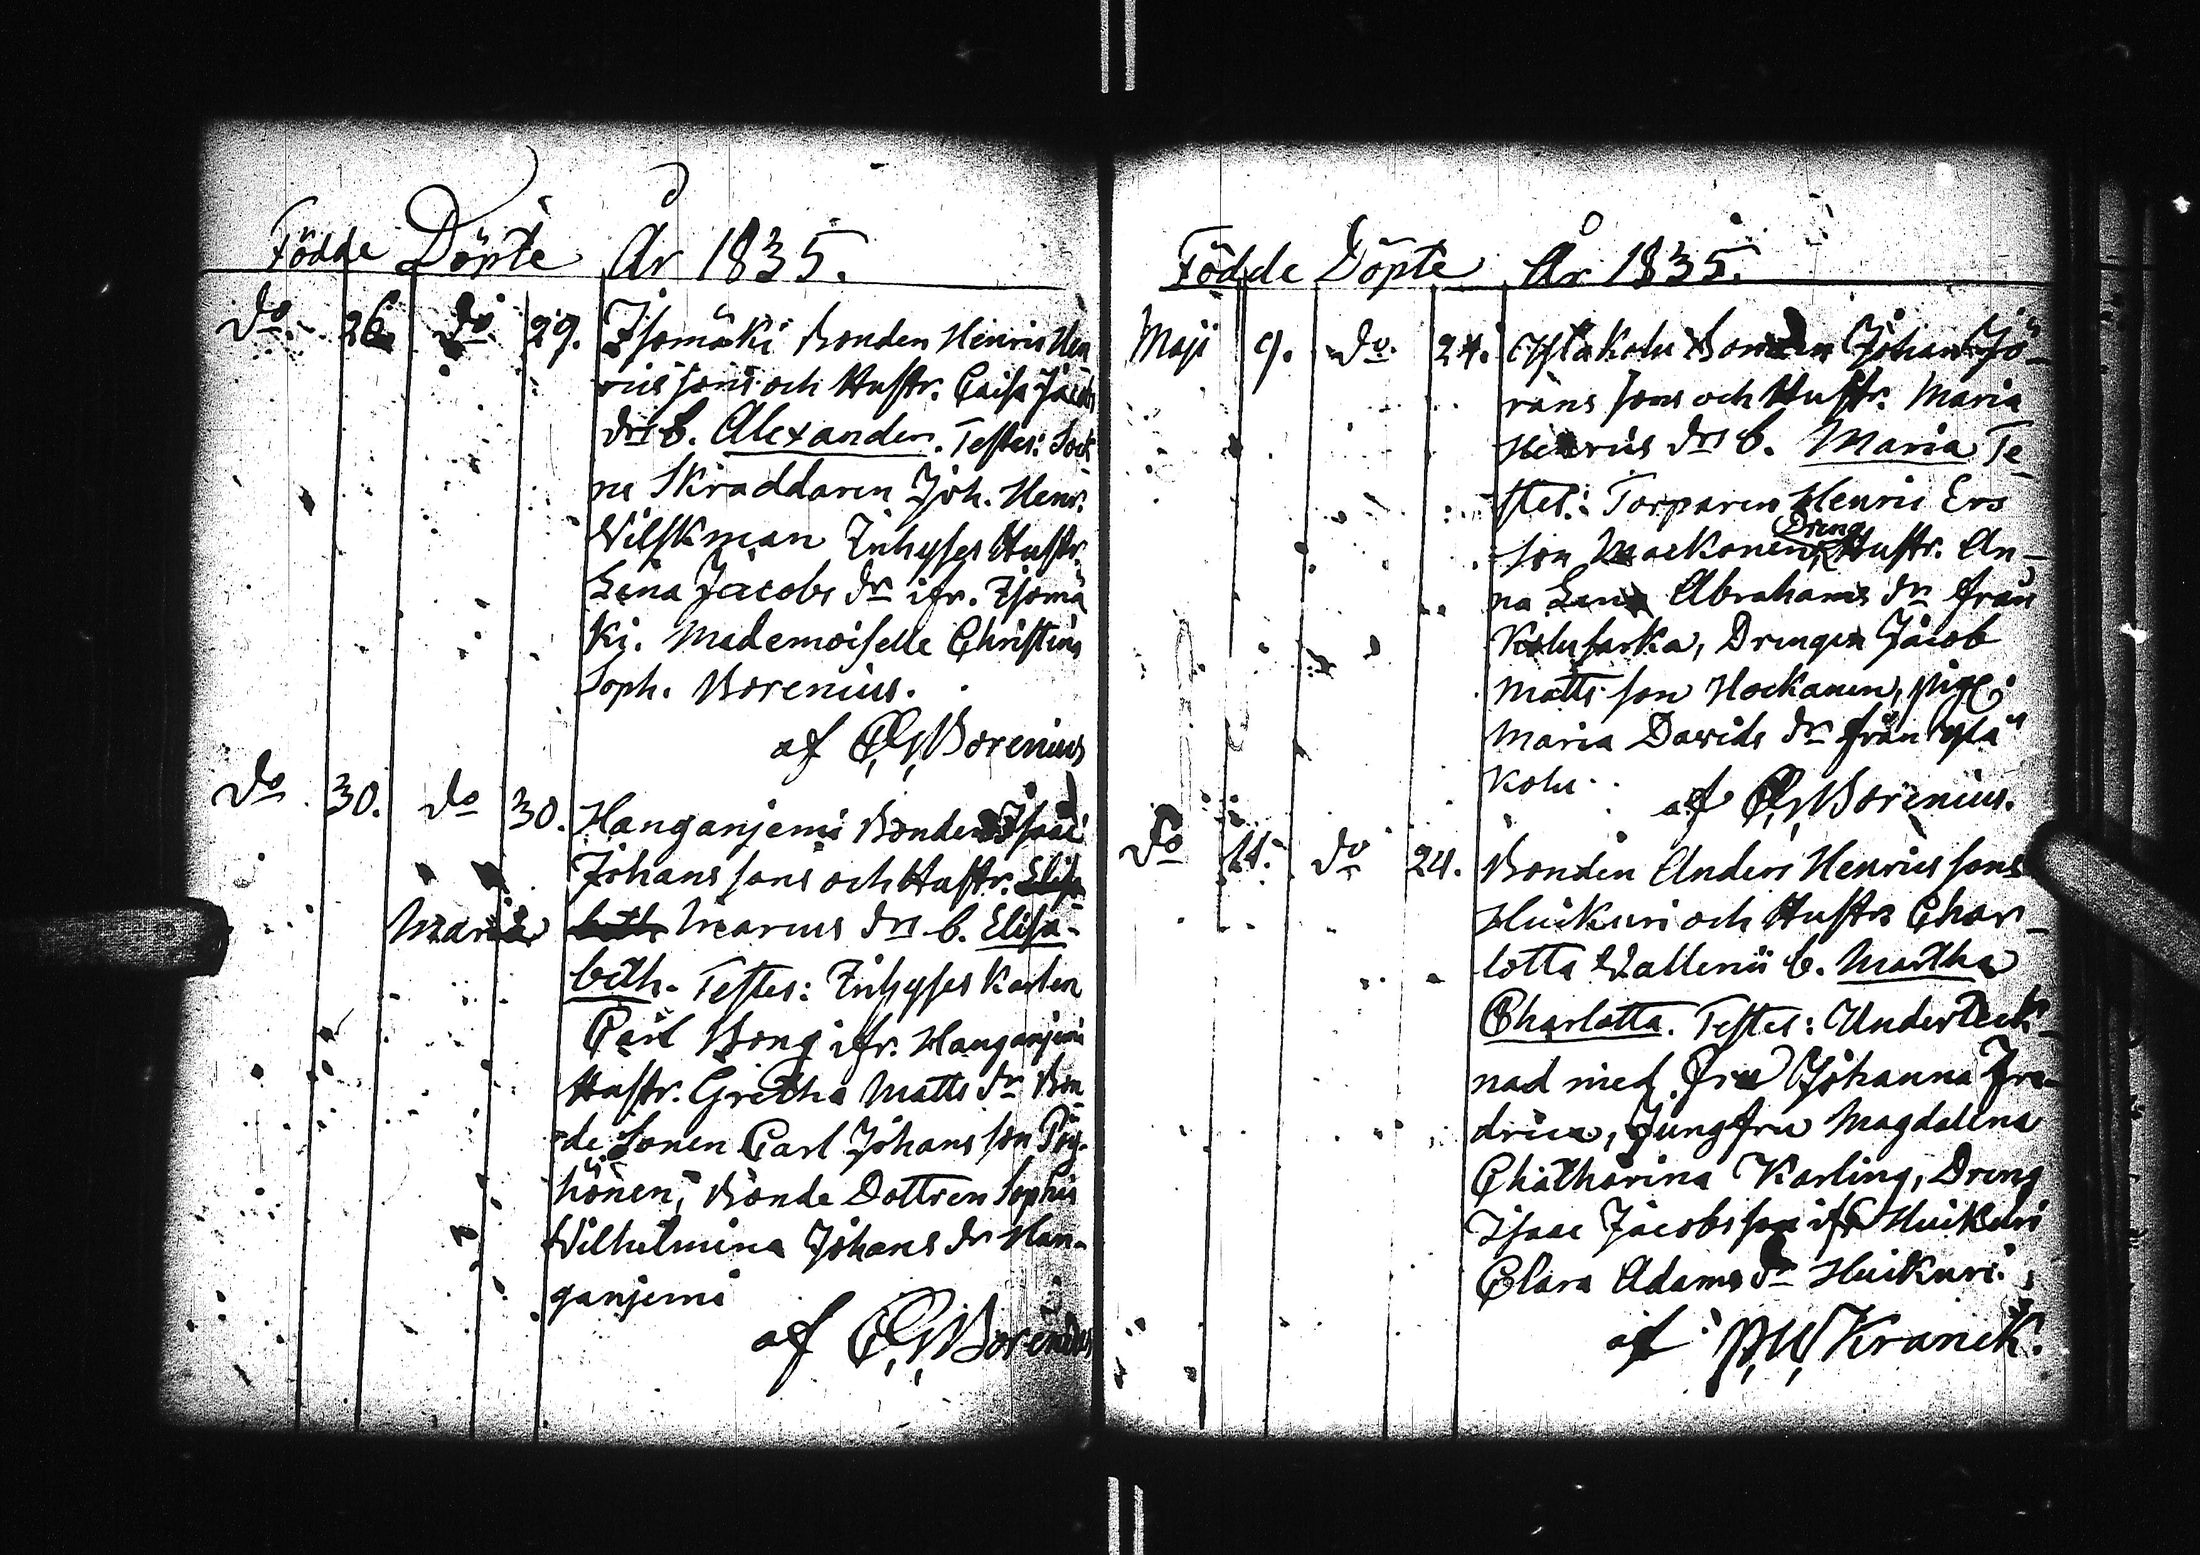 Födde Döpte År 1835.
Do 26 Do 29. Isomäki Bonden Henric Hen
rics sons och Hustr. Caisa Jacobs
drs b. Alexander. Testes: Sock
ne Skräddaren Joh. Henr.
Vilskman Inhyses Hustr.
Lena Jacobs dr ifr. Isomä
ki. Mademoiselle Christina
Soph. Borenius.
af C. G. Borenius
Do 30. Do 30. Hanganjemi Bonden Isaac
Johans sons och Hustr. Elisa
beth Marcus drs b. Elisa-
beth. Testes: Inhyses Karlen
Carl Bong ifr. Hanganjemi
Hustr. Gretha Matts dr Bon
de Sonen Carl Johans son Pöy-
hönen, Bonde Dottren Sophia
Wilhelmina Johans dr Han-
ganjemi
af C. G. Borenius
Födde Döpte År 1835.
Maji 9. Do. 24. Yläkolu Bonden Johan Jö-
rans sons och Hustr. Maria
Henrics drs b. Maria Te-
stes: Torparen Henric Ers
son Mackonen, Dreng Hustr. An-
na Lena Abrahams dr från
Kolusarka, Drengen Jacob
Matts son Hockanen, pig.
Maria Davids dr från Ylä
kolu.
af C. G. Borenius.
Do 14. Do 24. Bonden Anders Henrics sons
Huikuri och Hustrs Char-
lotta Wallenii b. Martha
Charlotta. Testes: Underteck-
nad med Fru Johanna Fre-
drica, Jungfru Magdalena
Chatharina Karling, Dreng
Isaac Jacobs son ifr Huikuri
Clara Adams dr Huikuri.
af P. W. Kranck.